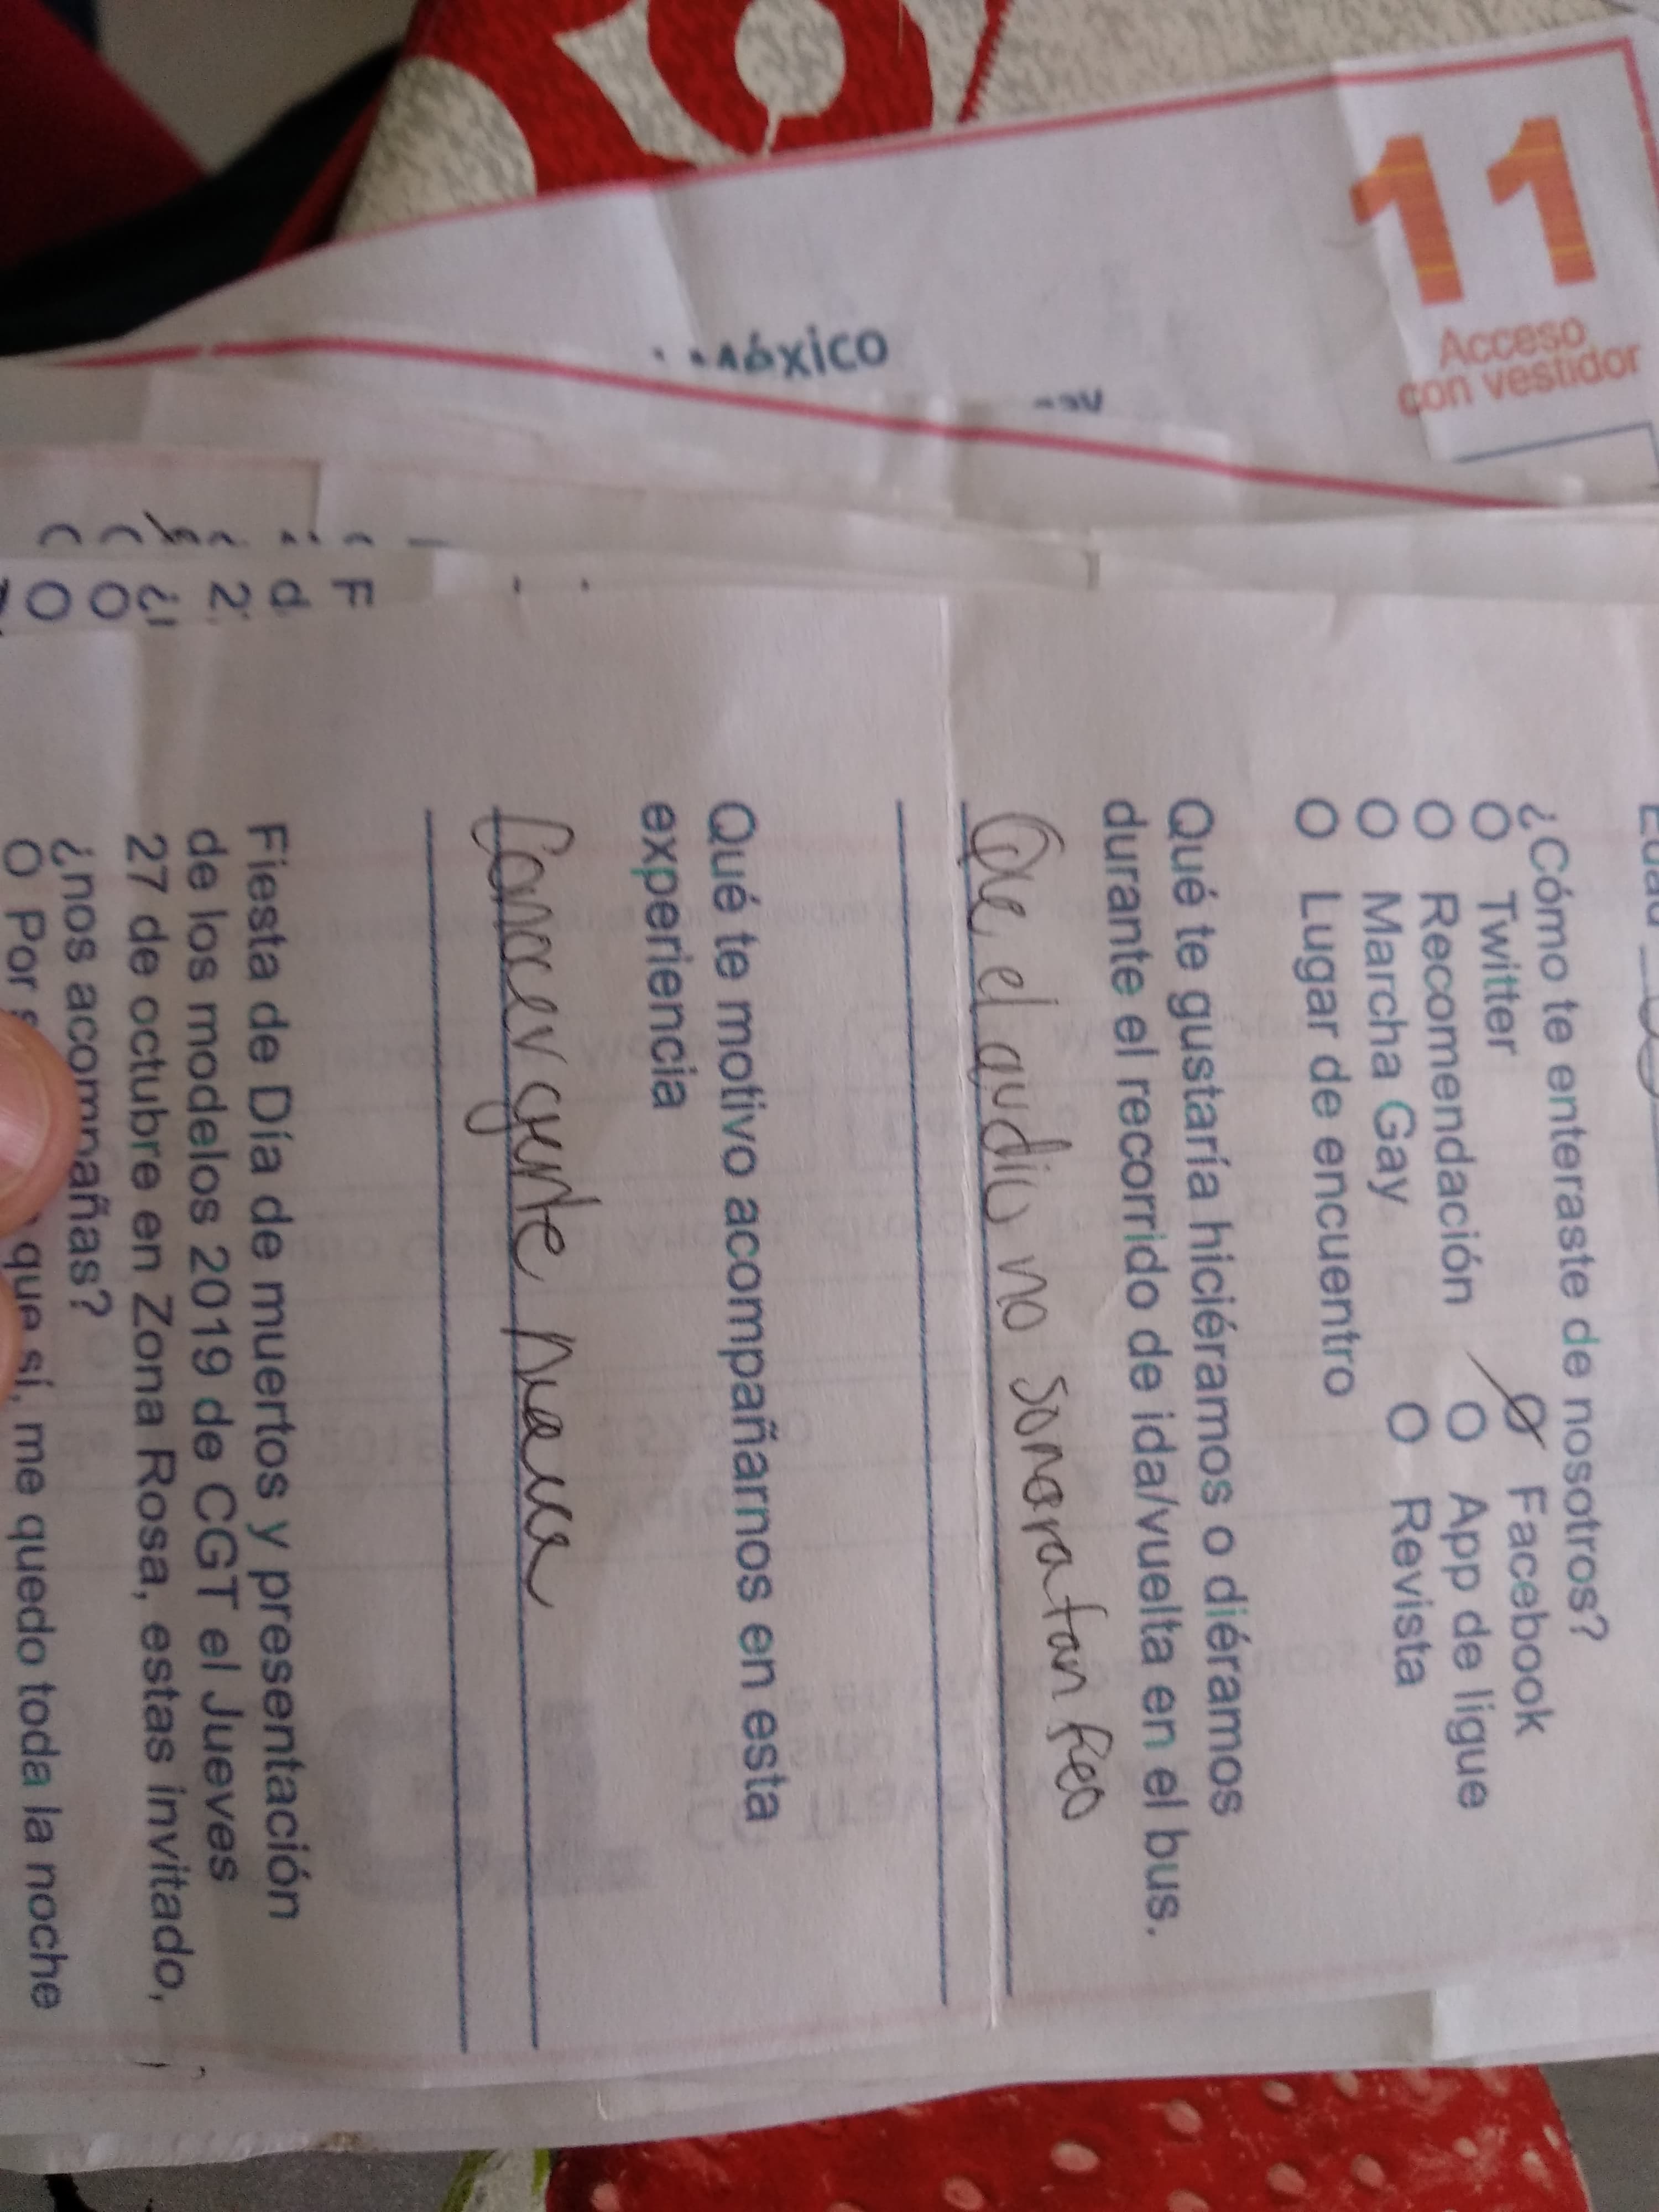 11
Acceso
con vestidor
México
¿Cómo te enteraste de nosotros?
O Twitter O Facebook
O Recomendación O App de ligue
O Marcha Gay O Revista
O Lugar de encuentro
Qué te gustaría hiciéramos o diéramos
durante el recorrido de ida/vuelta en el bus.
Que el audio no sonara tan feo
Qué te motivo acompañarnos en esta
experiencia
Conocer gente nueva
Fiesta de Día de muertos y presentación
de los modelos 2019 de CGT el Jueves
27 de octubre en Zona Rosa, estas invitado,
¿nos acompañas?
O Por que sí, me quedo toda la noche
F
d
2
¿
O
O